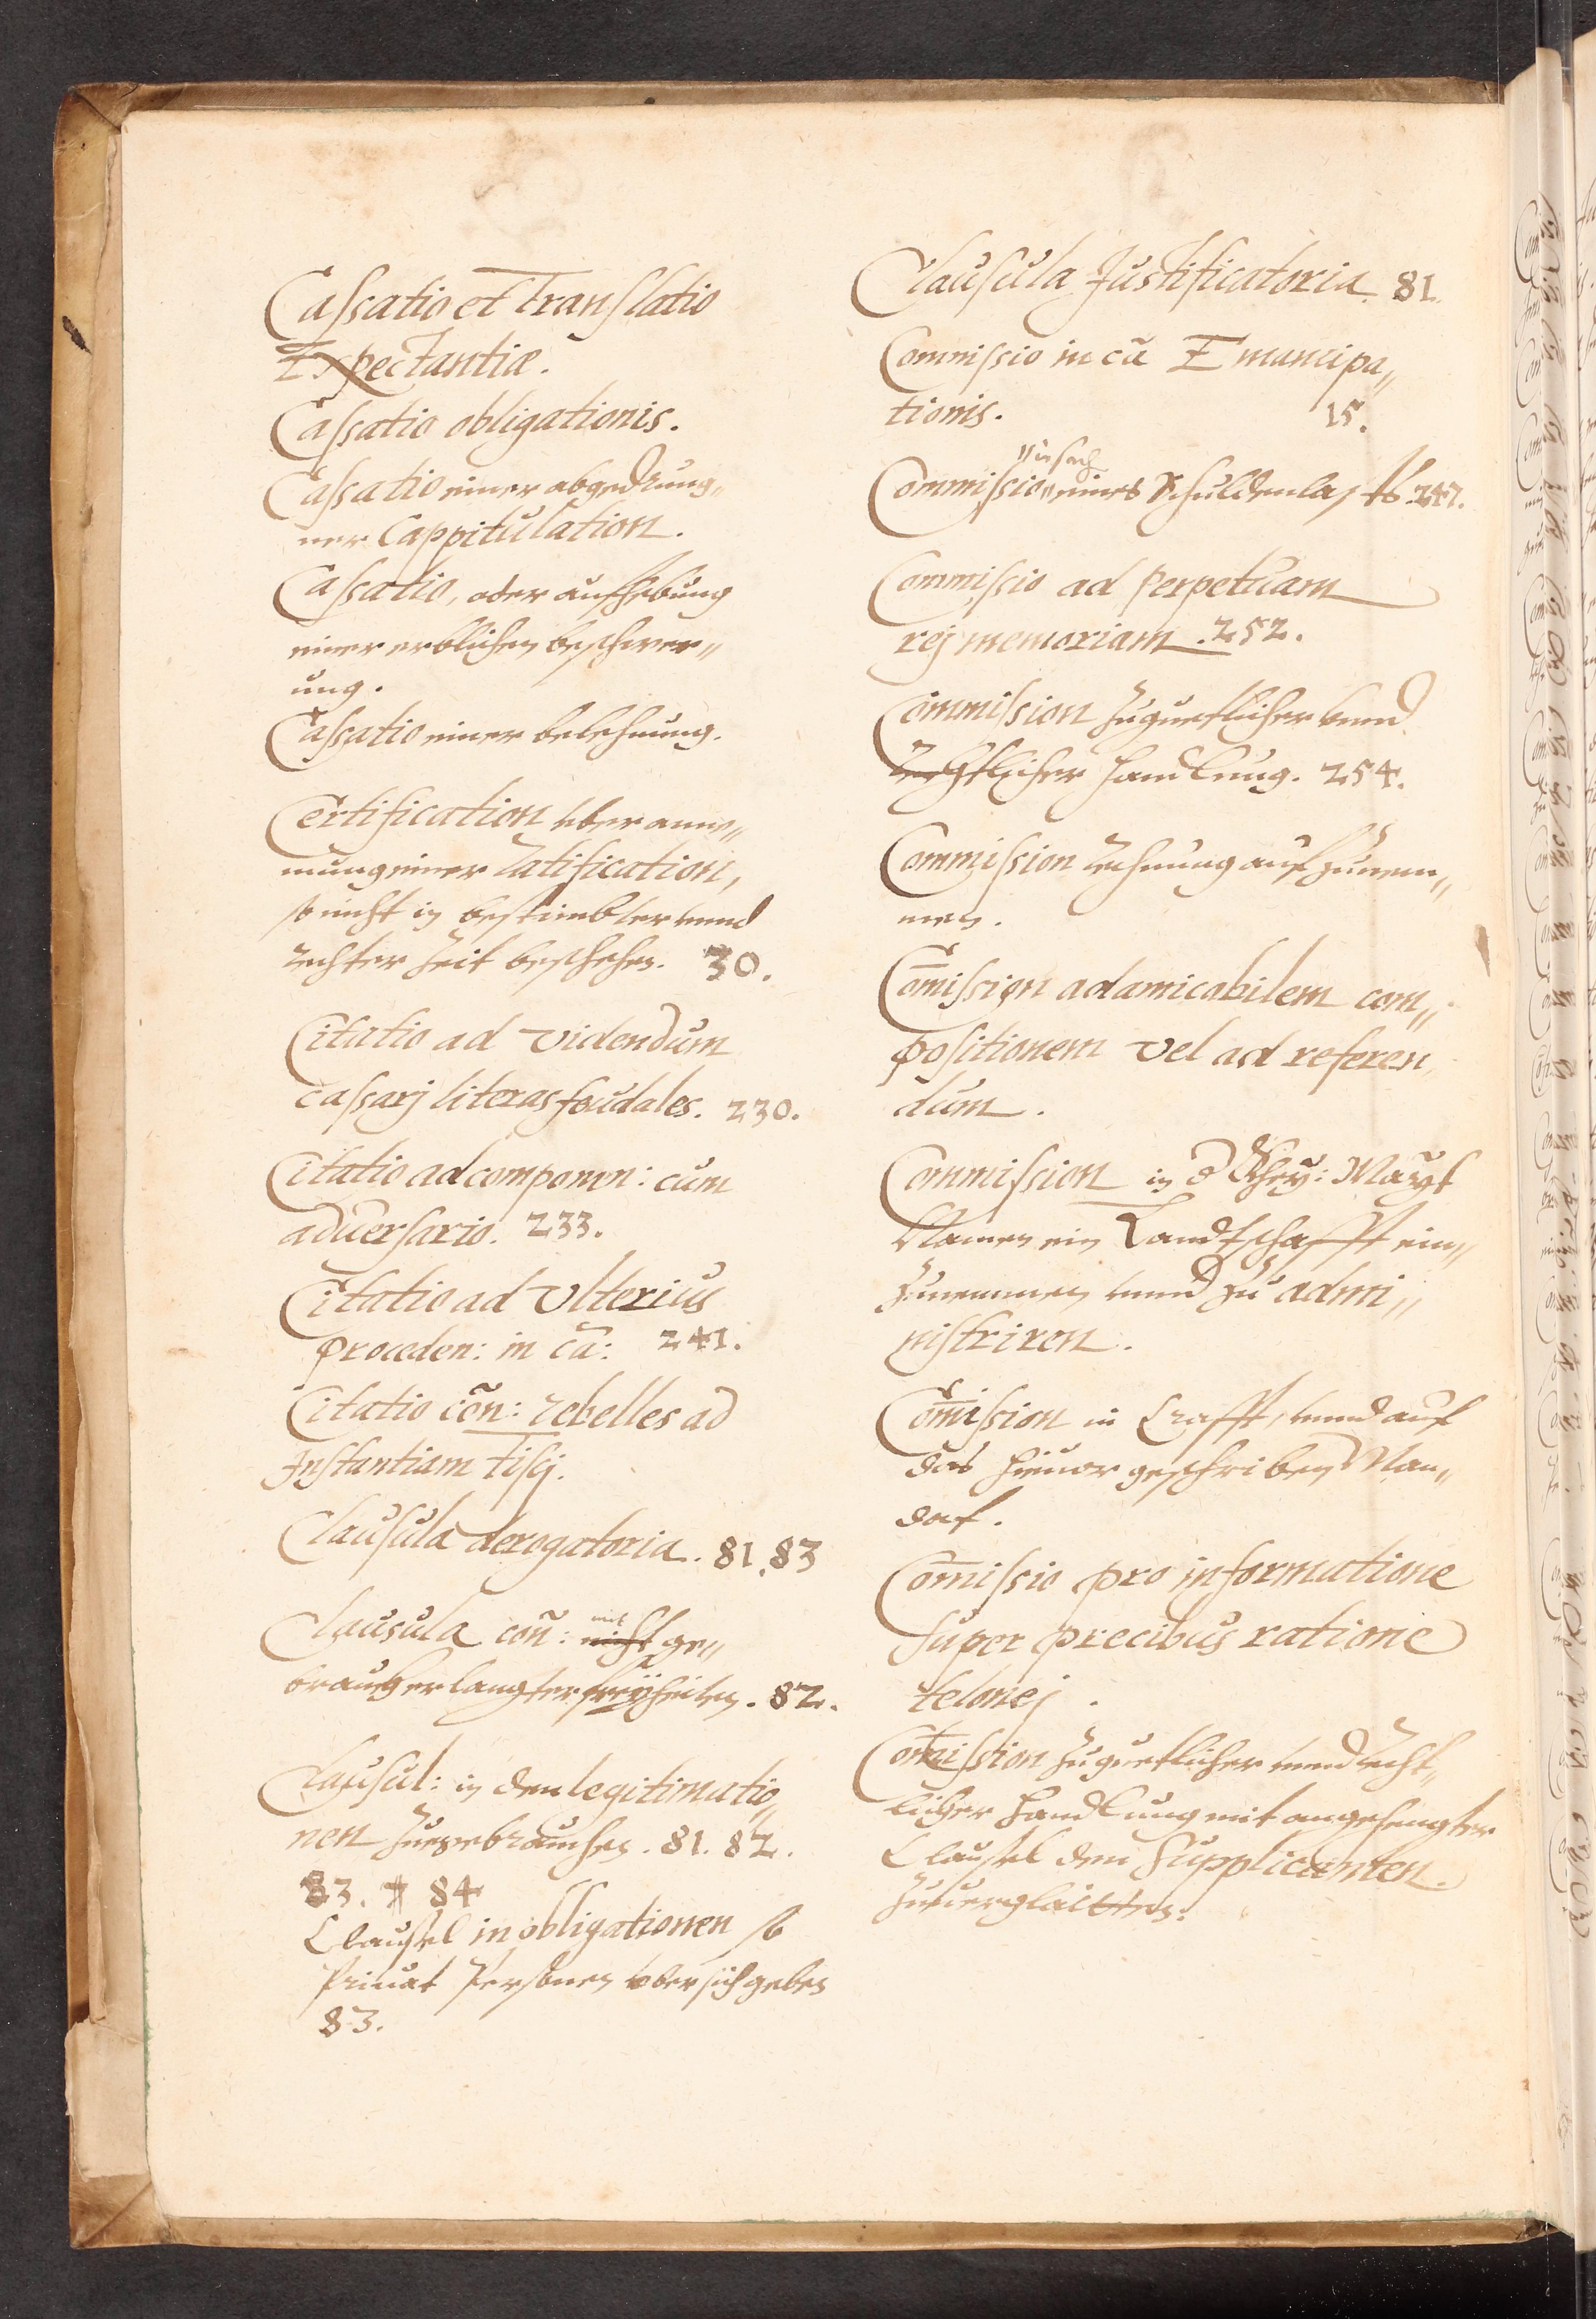 Cassatio et Translatio
Expectantiæ.
Cassatio obligationis.
Cassatio einer abgedrung„
ner Cappitulation.
Cassatio, oder aufhebung
einer erblichen beschwer„
ung.
Cassatio einer belehnung.
Certification uber anne„
mung einer ratification,
so nicht in bestimbter unnd
rechter Zeit beschehen. 30.
Citatio ad videndum
cassarj literas feudales. 230.
Citatio ad componen: cum
aduersario. 233.
Citatio ad Vlterius
proceden: in cã: 241.
Citatio cõn: rebelles ad
Instantiam Fiscj.
Clausula derogatoria. 81. 83
Clausula coñ: nicht ge„
brauch erlangter freÿheiten. 82.
Clausul: in den legitimatio„
nen zuegebrauchen. 81. 82.
83. 84
Clausel in obligationen so
Priuat Personen vber sich geben
83.
Clausula Justificatoria 81.
Commissio in cã Emancipa„
tionis. 15.
in sach
Commissio eines Schuldenlasts 247.
Commissio ad perpetuam
rej memoriam. 252.
Commission zu guetlicher vnnd
rechtlicher handlung. 254.
Commission rechnung aufzunem„
men.
Com̃ission ad amicabilem com„
positionem vel ad referen„
dum.
Commission in d Khay: Mayt
Namen ein Landtschafft ein„
zunemmen vnnd zu admi„
nistriren.
Com̃ission in Crafft, vnnd auf
das hieuor geschriben Man„
dat.
Com̃issio pro informatione
super precibus ratione
telonej.
Com̃ission zu guetlicher vnnd recht„
licher handlung mit angehengter
Clausel den Supplicanten